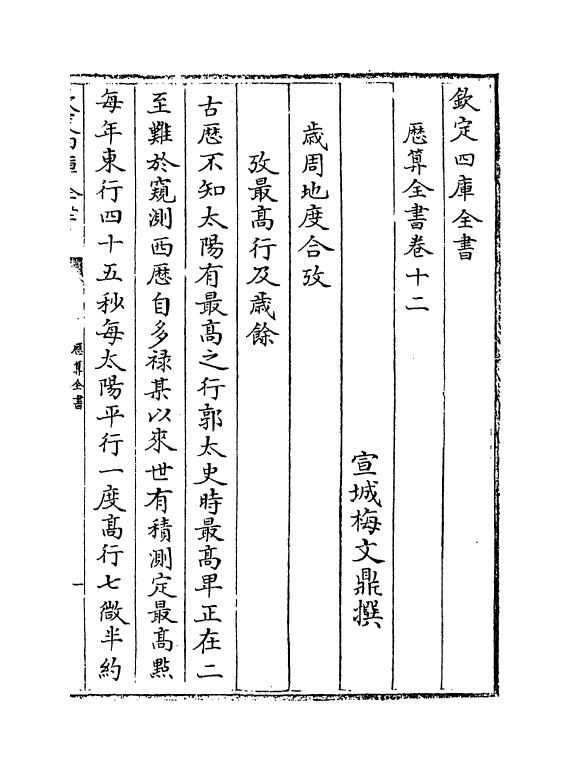 欽定四庫全書
厯算全書卷十二
宣城梅文鼎撰
歳周地度合攷
攷最髙行及歳餘
古厯不知太陽有最髙之行郭太史時最髙卑正在二
至難於窺測西厯自多禄某以來世有積測定最髙㸃
每年東行四十五秒每太陽平行一度髙行七㣲半約
厯算全書
一